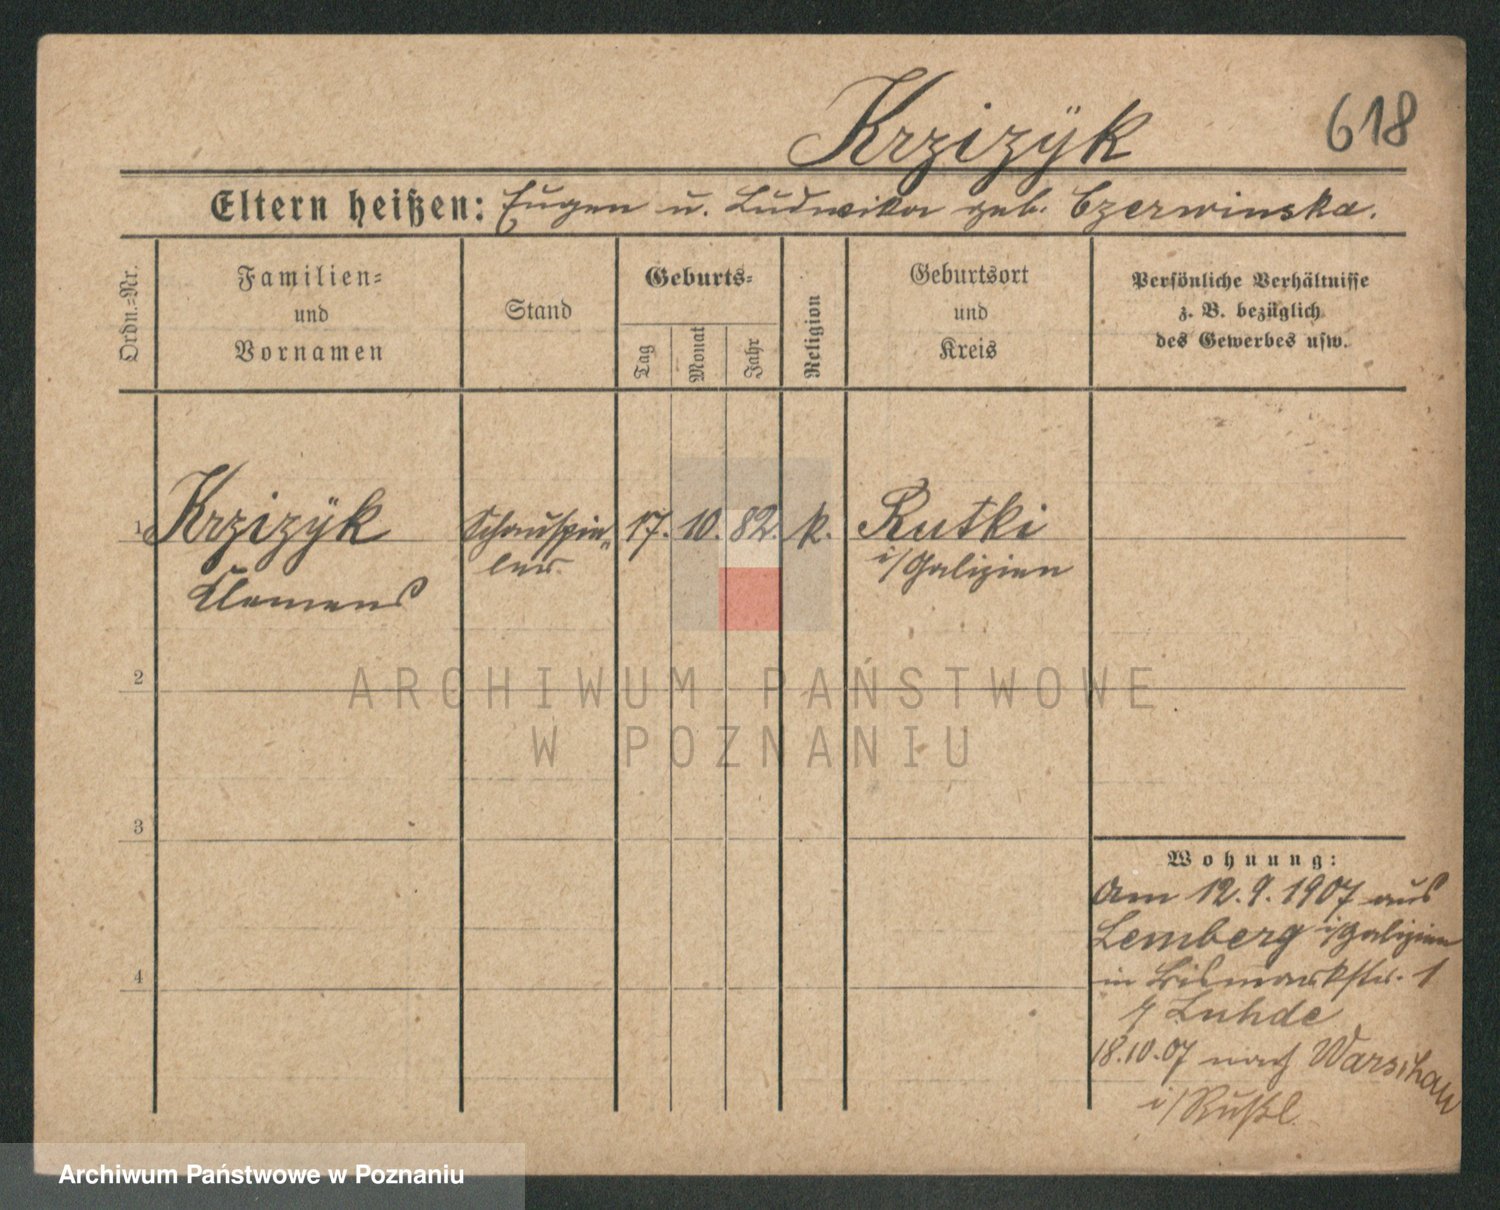 Krzizÿk
618
Eltern heißen: Eugen u. Ludwika geb. Czerwinska.
Ordn.-Nr.
Familien-
und
Vornamen
Stand
Geburts-
Tag
Monat
Jahr
Religion
Geburtsort
und
Kreis
Persönliche Verhältnisse
z. B. bezüglich
des Gewerbes usw.
1 Krzizÿk Schauspie- 17. 10. 82. k. Rutki
ler. i/Galizien
Klemens
2
ARCHIWUM PAŃSTWOWE
W POZNANIU
3
Wohnung:
Am 12.9.1907 aus
Lemberg i/Galizien
4
in Bismarkstr. 1
Luhde
18.10.07 nach Warschau
i/Rußl.
Archiwum Państwowe w Poznaniu